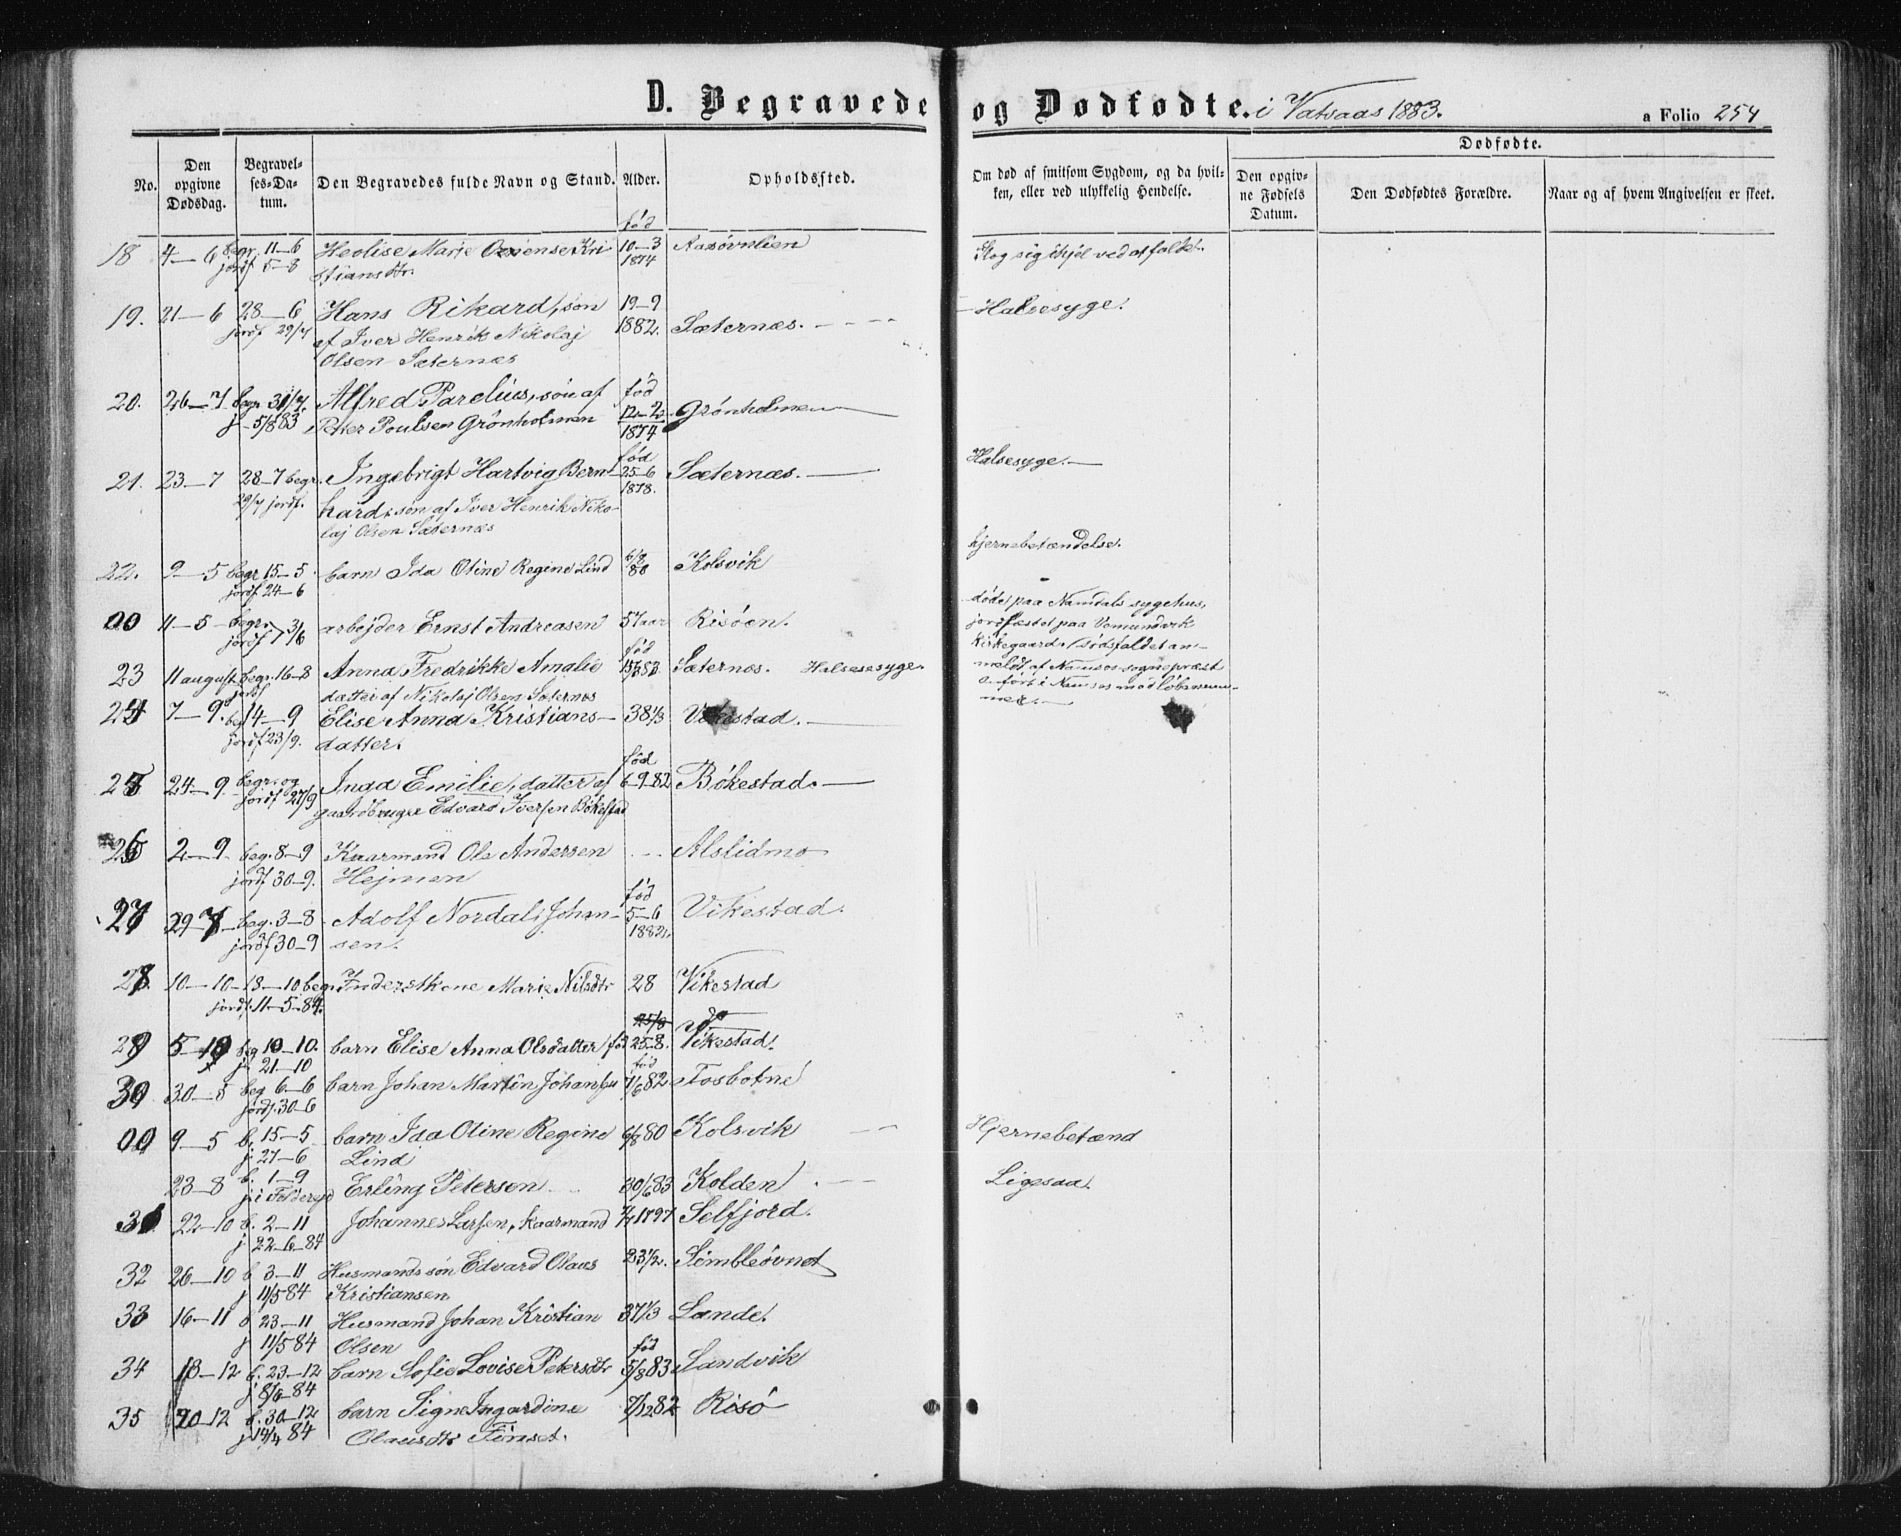 D. Begravede og Dødfødte. i Vatsaas 1883. a Folio 254
No. Den opgivne Dødsdag. Begravelses-Datum. Den Begravedes fulde Navn og Stand. Alder. Opholdssted. Om død af smitsom Sygdom, og da hvilken, eller ved ulykkelig Hendelse. Dødfødte. Den opgivne Fødsels Datum. Den Dødfødtes Forældre. Naar og af hvem Angivelsen er skeet.
fód
18 4–6 begr. 11–6 Heolise Marie Kri 10–3 Slog sig ihjel ved at falde.
jordf 5–8 stiansdtr. 1874
19. 21–6 28–6 Hans Rikard, søn 19–9 Halsesyge.
jordf 29/7 af Iver Henrik Nikolaj 1882. Sæternæs.
Olsen Sæternæs
20. 26–7 begr 31/7. Alfred Parelius, søn af fód 12–2 Grónholmen
j. 5/8 83 Peter Poulsen Grónholmen 1874
21. 23–7 28–7 begr. Ingebrigt Hartvig Bern fód 25–6 Sæternæs. Halsesyge.
29/7 jordf. hard, søn af Iver Henrik Niko- 1878.
laj Olsen Sæternæs
hjernebetændelse.
22. 9–5 begr 15–5 barn Ida Oline Regine Lind 6/8 80 Kolsvik
jordf 24–6
00 11–5 begr. jordf 3/6 arbejder Ernst Andreasen 57 aar Risóen. dødet paa Namdals sygehus,
jordfæstet paa Vemundvik
kirkegaard. Dødsfaldet an-
meldt af Namsos sognepræst
anført i Namsos med løbenum-
mer.
23 11 august begr. 16–8 Anna Fredrikke Amalie fód Sæternæs. Halsesesyge.
jordf datter af Nikolaj Olsen Sæternæs
24 7–9. beg 14–9 Elise Anna Kristians- 38 1/3 Vikestad.
jordf 23/9. datter.
25 24–9 begr. og Inga Emilie, datter af fód 6–9–82 Bókestad.
jordf 27/9 gaardbruger Edvard Iversen Bókestad
26 2–9 beg. 8–9 Kaarmand Ole Andersen Alslidmo
jordf 30–9. Hejmen
27 29–7 beg. 3–8 Adolf Nordali Johan- fód 5–6 Vikestad.
jordf 30–9 sen. 1882.
28 10–10 13–10 beg. Marie Nilsdtr 28 Vikestad
jordf. 11–5–84.
29 5–10 beg 10–10. barn Elise Anna Olsdatter fód 25–8. Vikestad.
j. 21–10
30 30–5 beg 6–6 barn Johan Martin Johansen fód 1/6 82 Fosbotne
jordf. 30–6
00 9–5 b. 15–5 barn Ida Oline Regine 6/8 80 Kolsvik Hjernebetænd
j. 27–6 Lind
23–8 b. 1–9 Erling Petersen 30/6 83 Kolden Ligesaa.
j. i
31 22–10 b. 2–11 Johannes Larsen, kaarmand 1797 Selfjord.
j 22–6–84
32 26–10 b 3–11 Husmands søn Edvard Olaus 23 1/2. Simbleóvnet
j 11/5 84 Kristiansen
33 16–11 b 23–11 Husmand Johan Kristian 37 1/3 Lande.
j 11/5 84 Olsen
34 13–12 b. 23–12 barn Sofie Lovise Petersdtr fód 5/8 83 Sandvik
j 8/6–84
35 20–12 b. 30–12 barn Signe Ingardine 7/12 82 Risó
j 14/4 84 Olausdtr Finset.